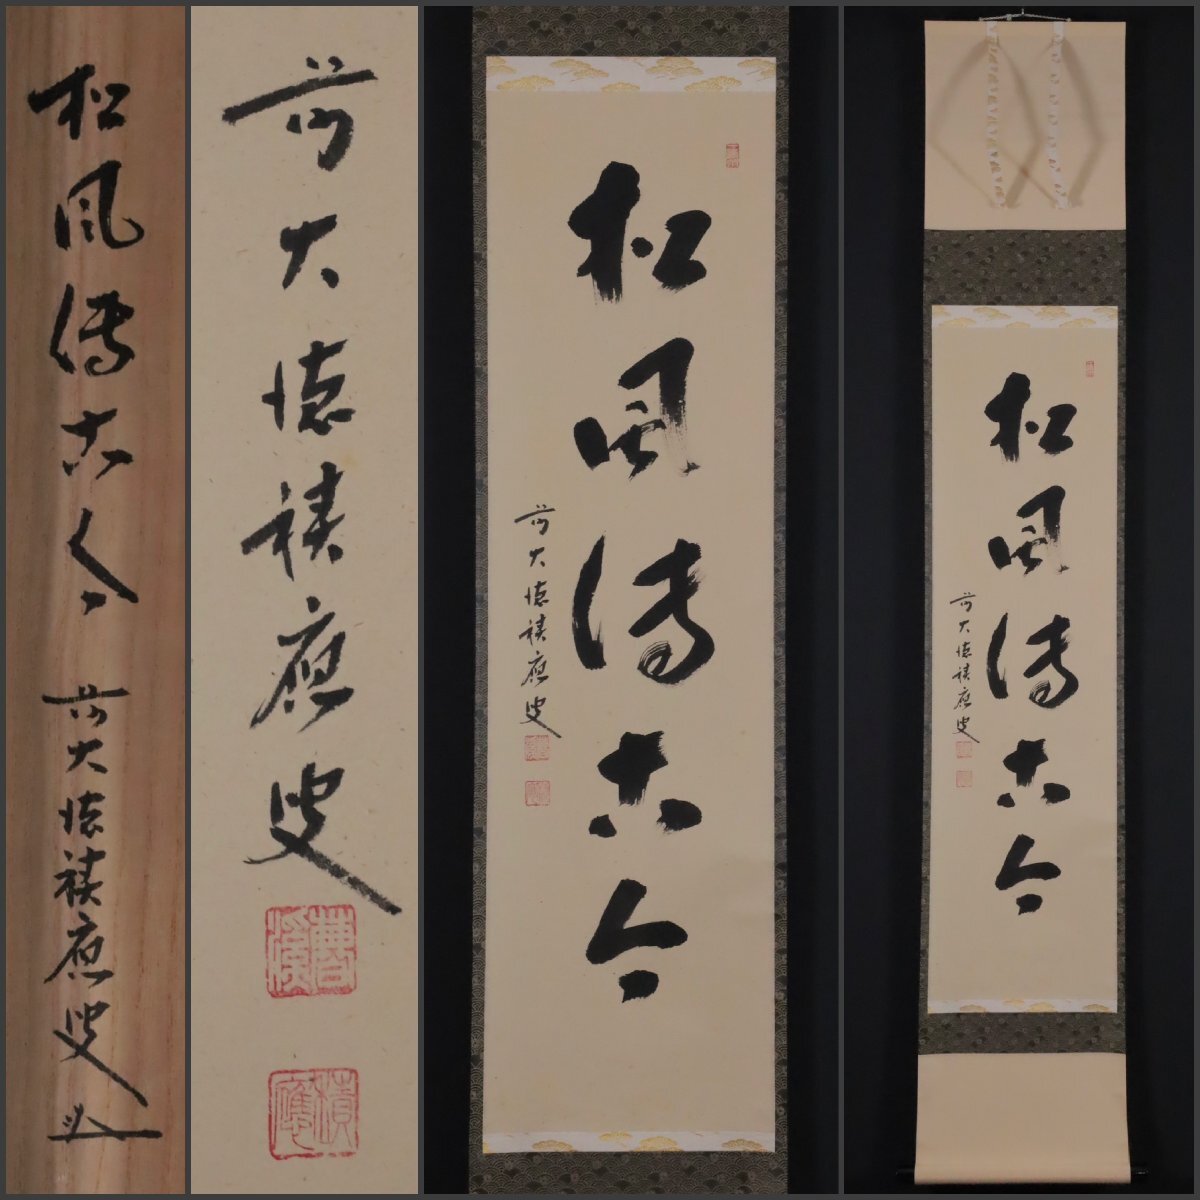 松風傳古今 前大徳積應叟
前大徳積應叟
積應
松風傳古今
前大徳積應叟
松風傳古今
前大徳積應叟